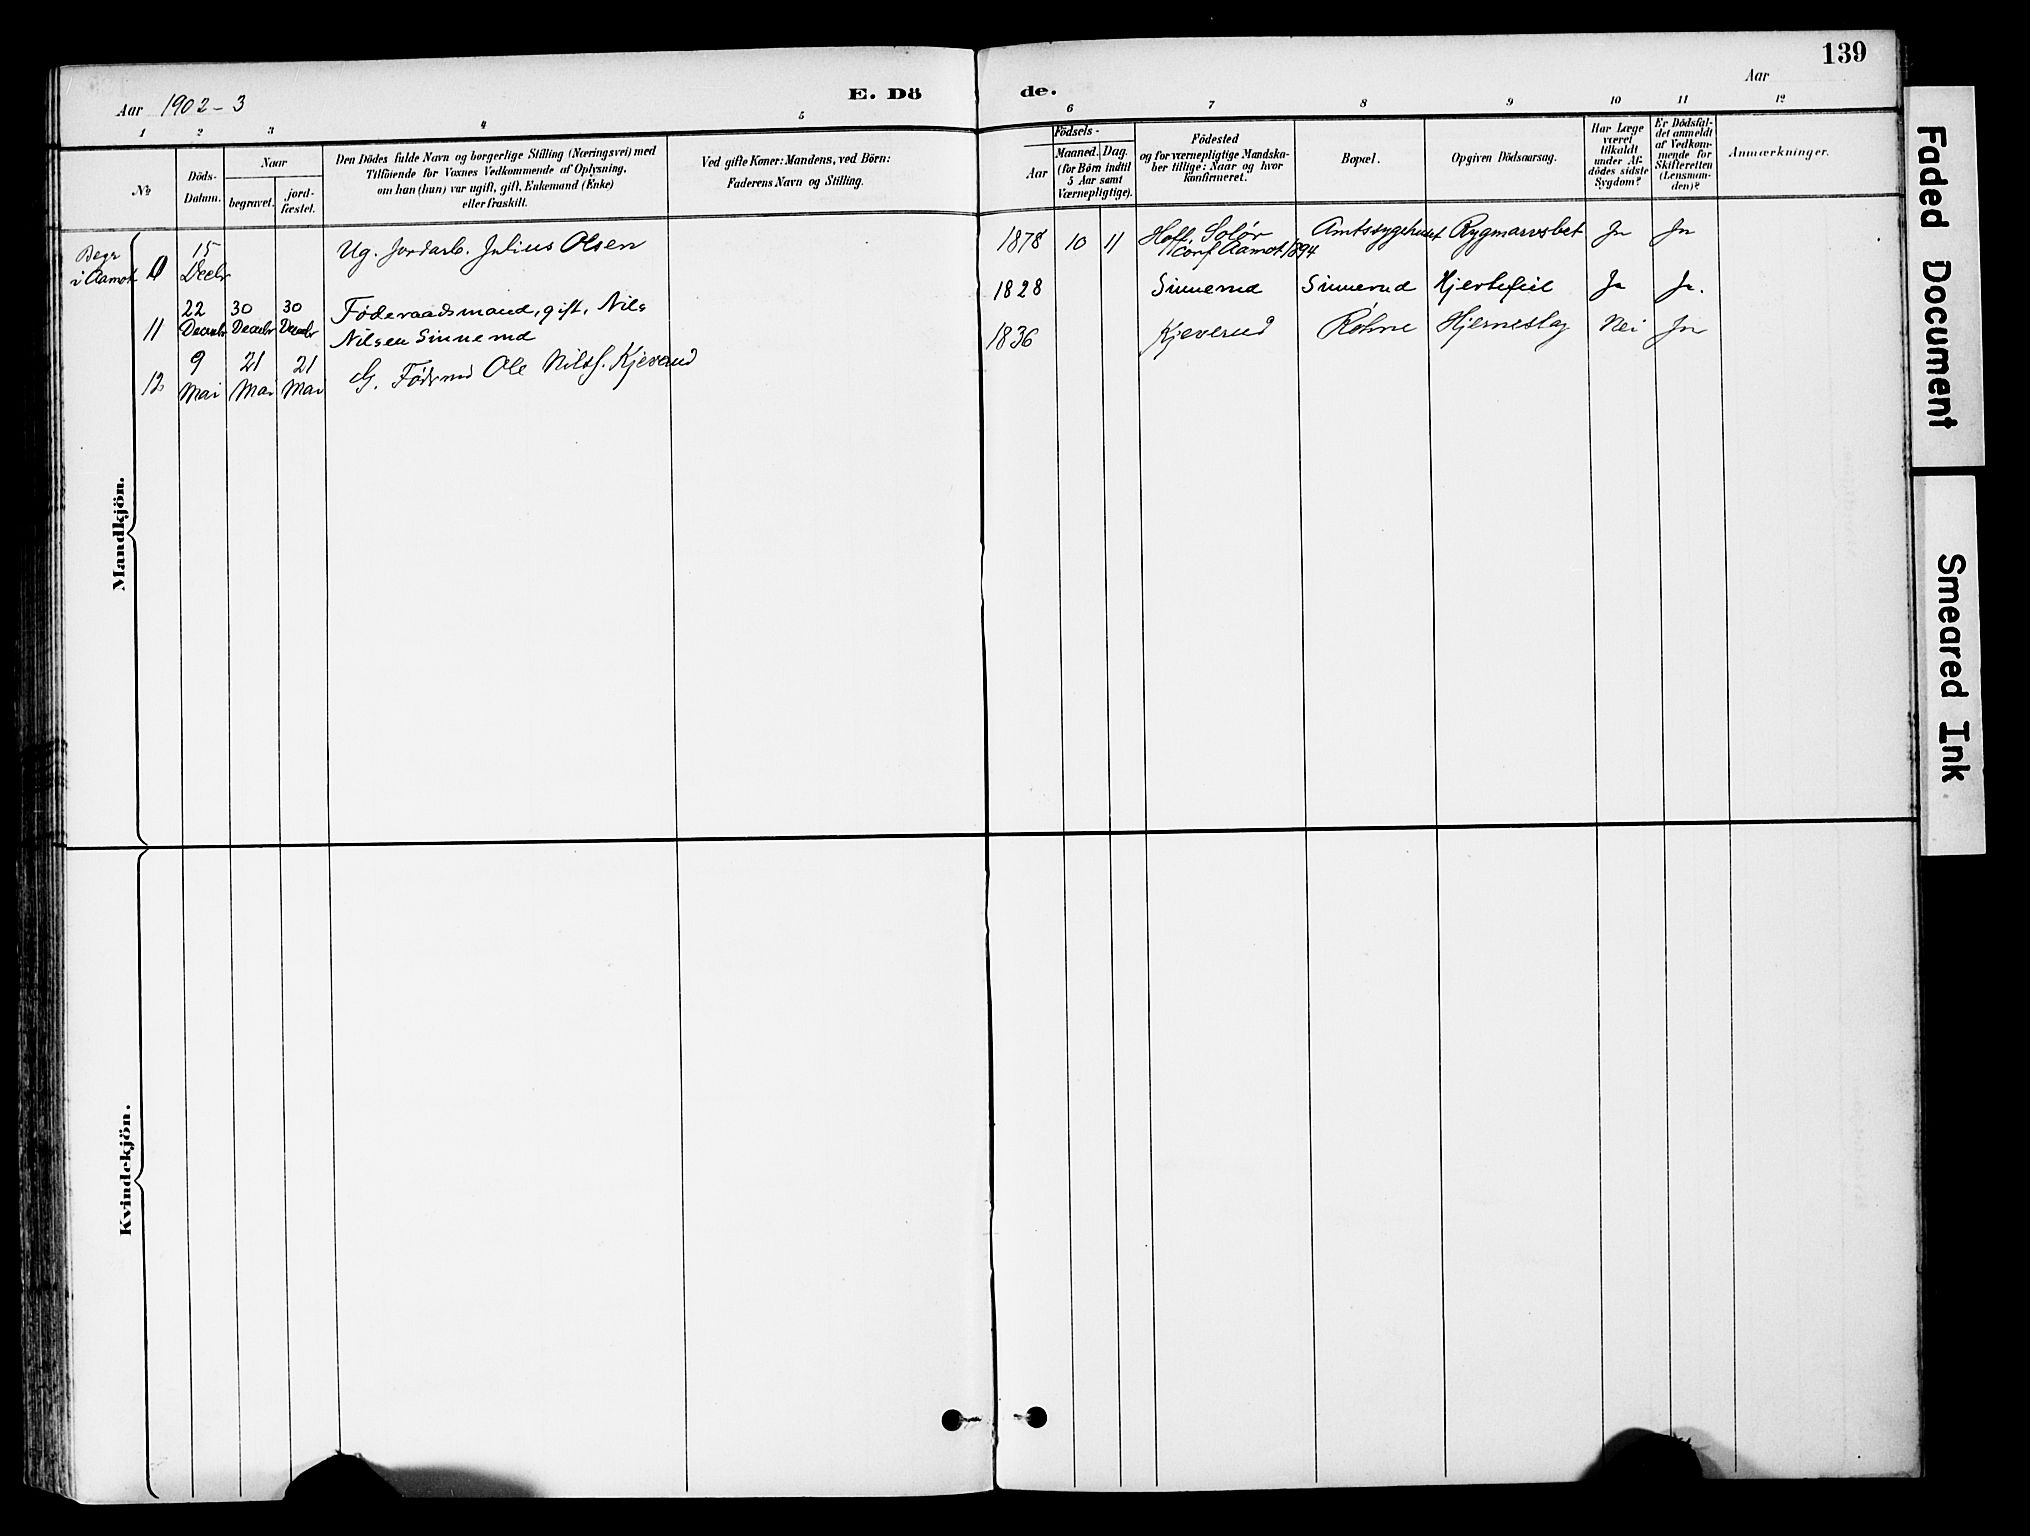 139
Aar 1902-3
E. Dö
de.
Aar
1 2 3 4 5
6 7 8 9 10 11 12
No
Döds-
Datum.
Naar
begravet.
jord-
fæstet.
Den Dödes fulde Navn og borgerlige Stilling (Næringsvei) med
Tilföiende for Voxnes Vedkommende af Oplysning,
om han (hun) var ugift, gift, Enkemand (Enke)
eller fraskilt.
Ved gifte Koner: Mandens, ved Börn:
Faderens Navn og Stilling.
Födsels-
Aar
Maaned. Dag.
(for Børn indtil
5 Aar samt
Værnepligtige).
Födested
og for værnepligtige Mandska-
ber tillige: Naar og hvor
konfirmeret.
Bopæl.
Opgiven Dödsaarsag.
Har Læge
været
tilkaldt
under Af-
dödes sidste
Sygdom?
Er Dödsfal-
det anmeldt
af Vedkom-
mende for
Skifteretten
(Lensman-
den)?
Anmærkninger.
Mandkjön.
Begr
i Aamot
15
Decbr
Ug. Jordarb. Julius Olsen
1878 10 11 Hoff, Solør Amtssygehuset Rygmarvsbet Ja Ja
Conf Aamot 1894
11
22 30 30
Decembr Decembr Decembr
Føderaadsmand, gift, Nils
Nilsen Sinnerud
1828 Sinnerud Sinnerud Hjertefeil Ja Ja.
12
9 21 21
Mai Mai Mai
G. Fødrmd Ole Nilss. Kjeverud
1836 Kjeverud Røhne Hjerneslag Nei Ja
Kvindekjön.
Faded Document
Smeared Ink